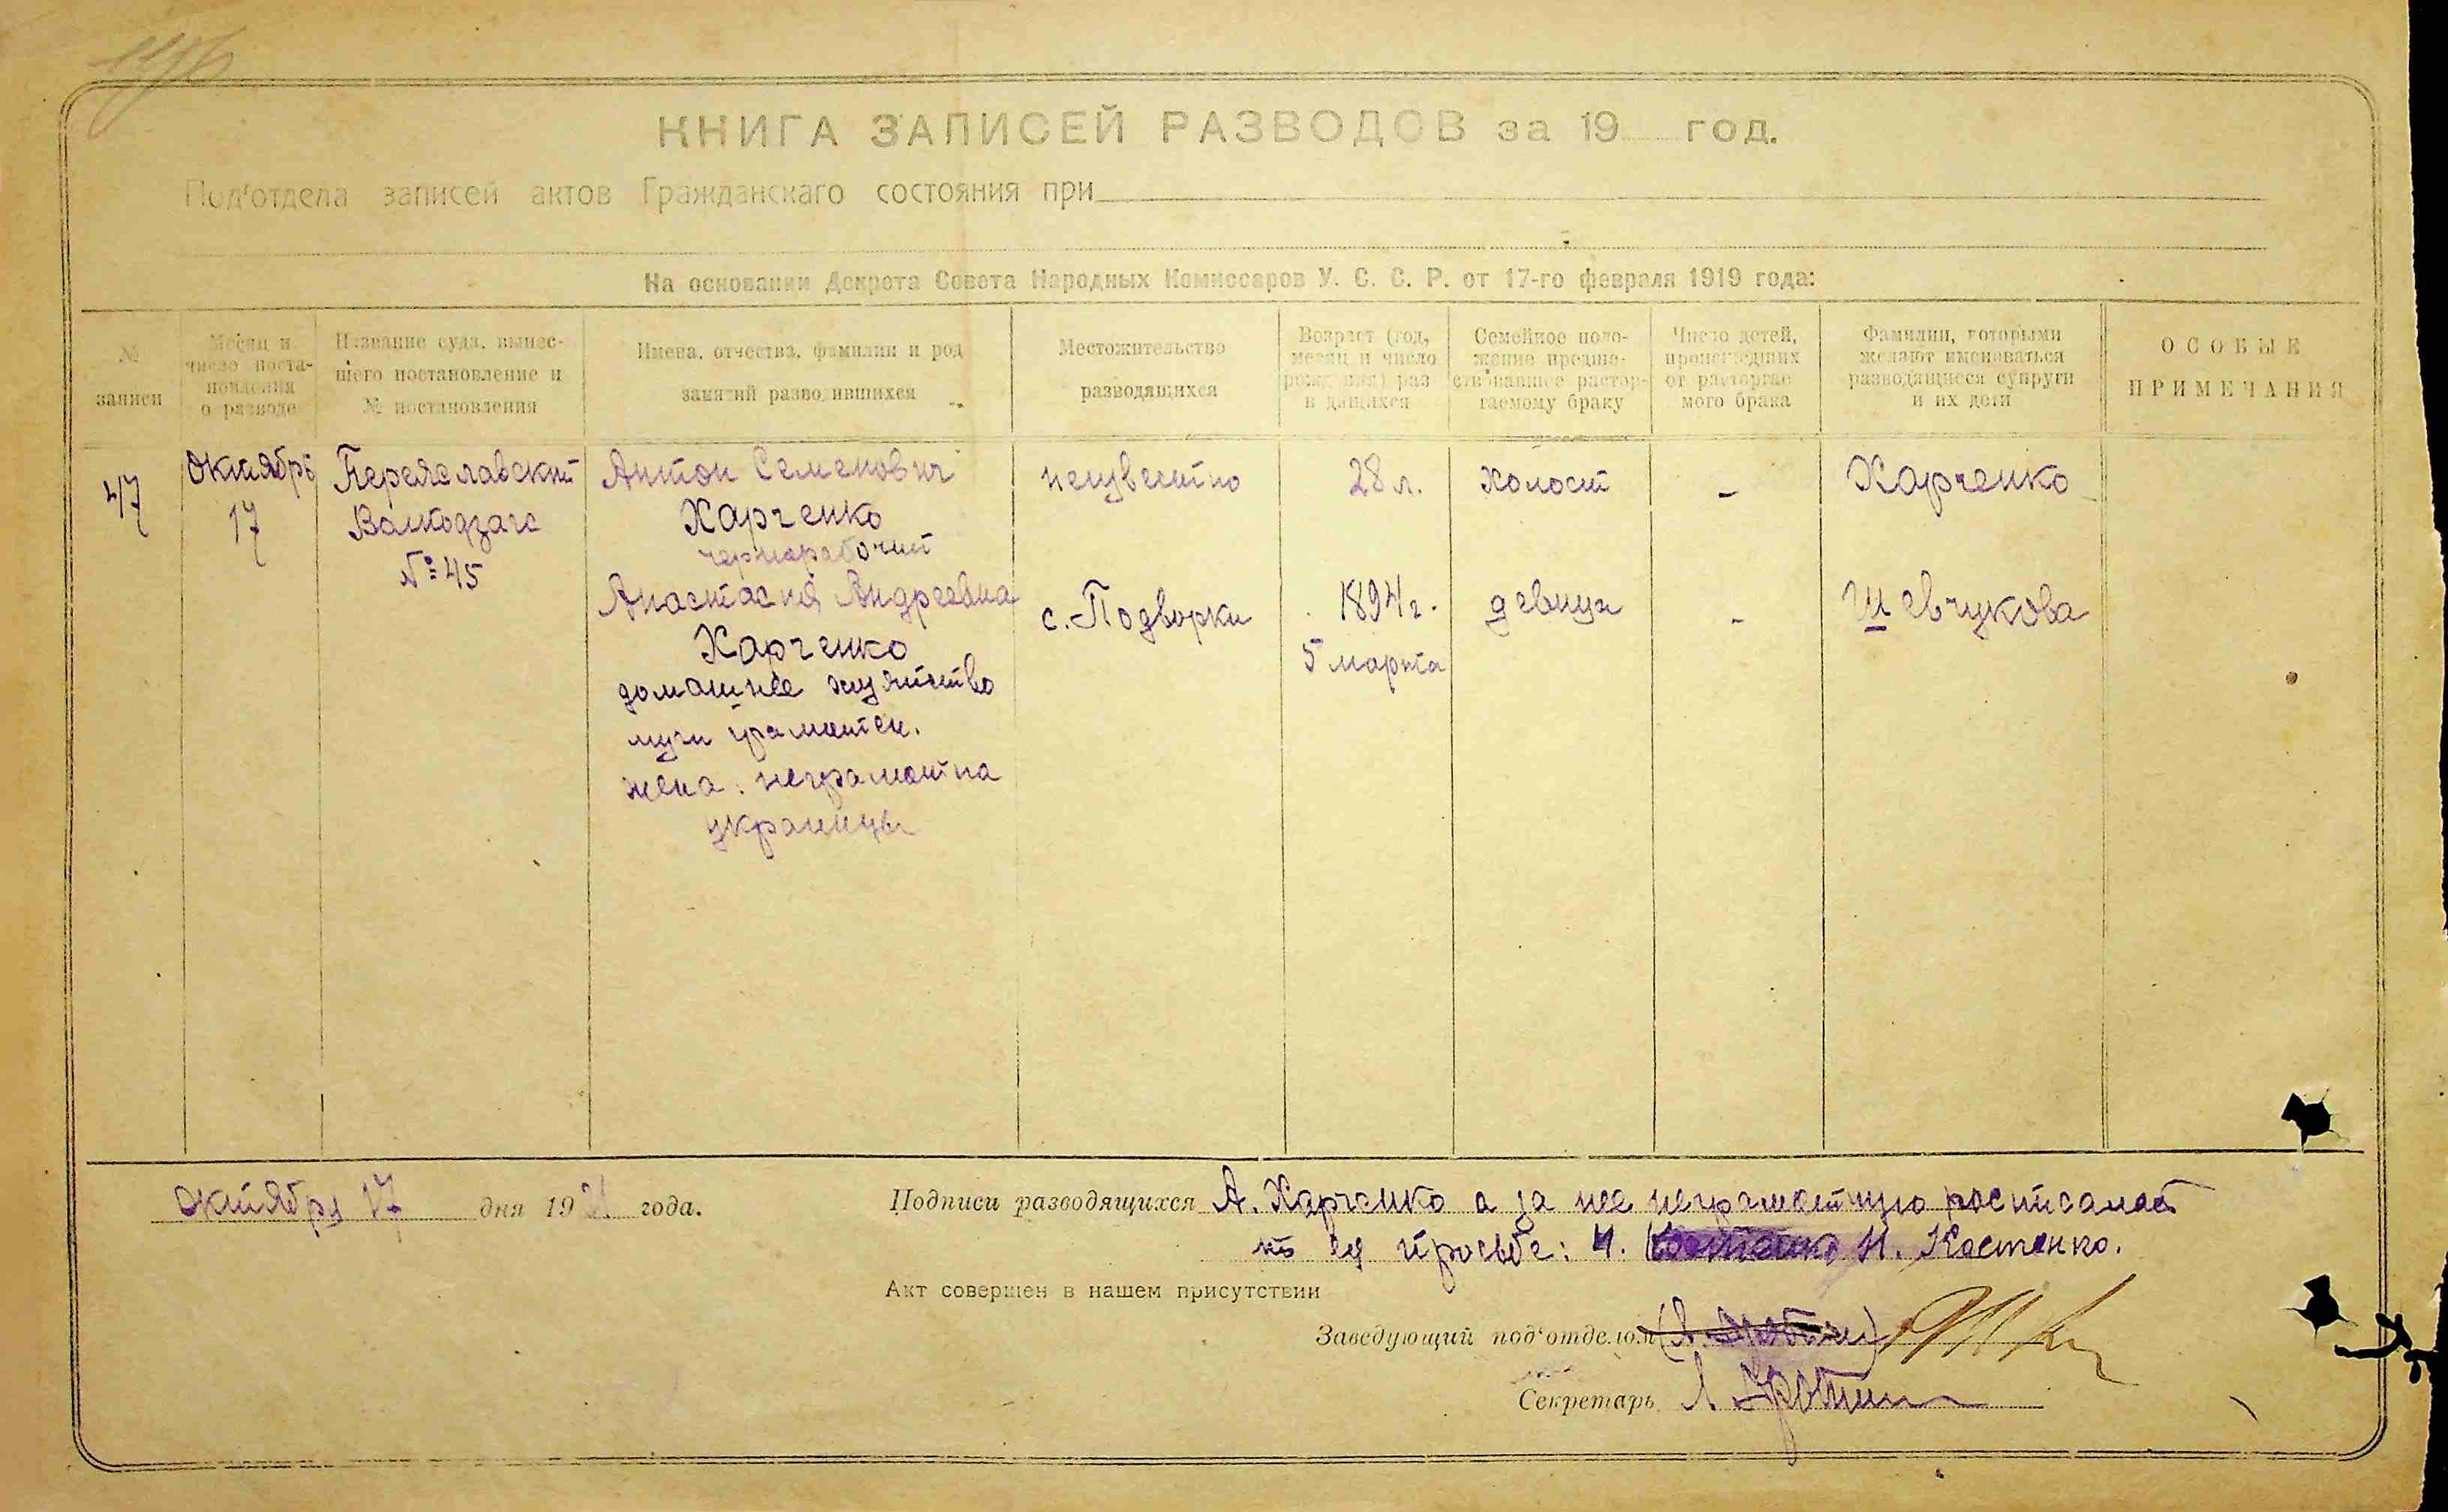 КНИГА ЗАПИСЕЙ РАЗВОДОВ за 19 год.
Под'отдела записей актов Гражданскаго состояния при
На основании Декрета Совета Народных Комиссаров У. С. С. Р. от 17-го февраля 1919 года:
№
записи
Месяц и
число поста-
новления
о разводе
Название суда, вынес-
шего постановление и
№ постановления
Имена, отчества, фамилии и род
занятий разводившихся
Местожительство
разводящихся
Возраст (год,
месяц и число
рождения) раз-
водящихся
Семейное поло-
жение предше-
ствовавшее растор-
гаемому браку
Число детей,
происшедших
от расторгае-
мого брака
Фамилии, которыми
желают именоваться
разводящиеся супруги
и их дети
ОСОБЫЕ
ПРИМЕЧАНИЯ
47
Октябрь
17
Переяславский
Волподзагс
№ 45
Антон Семенович
Харченко
чернорабочий
Анастасия Андреевна
Харченко
домашнее хозяйство
муж грамотен.
жена: неграмотна
украинцы
неизвестно
с. Подворки
28 л.
1894 г.
5 марта
холост
девица
-
-
Харченко
Шевчукова
октября 17 дня 1921 года.
Подписи разводящихся А. Харченко а за нее неграмотную росписался
по ея просьбе: Н. Костенко.
Акт совершен в нашем присутствии
Заведующий под'отделом
Секретарь